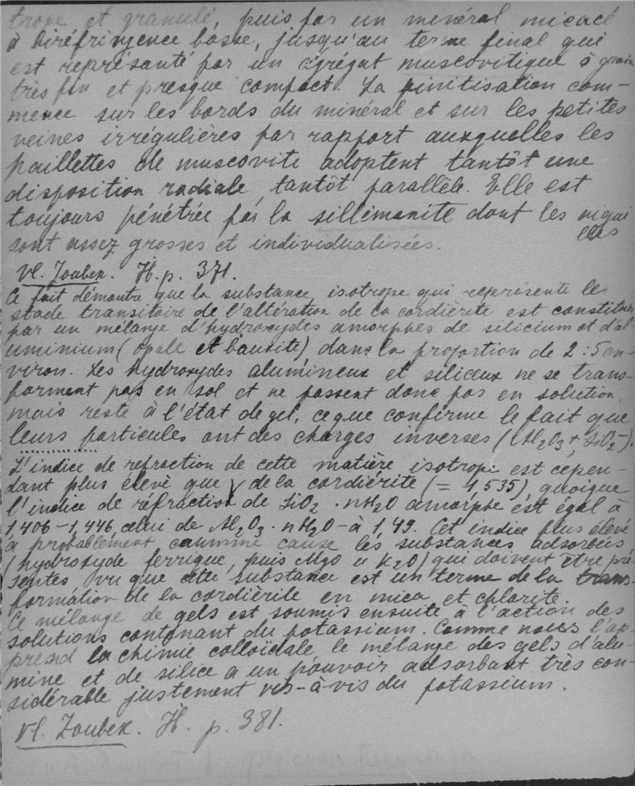 trope et granulé, puis par un minéral micacé
à biréfringence basse, jusqu'au terme final qui
est représanté par un agrégat muscovitique à grain
très fin et presque compact. La pinitisation com-
mence sur les bords du minéral et sur les petites
veines irrégulières par rapport auxquelles les
paillettes de muscovite adoptent tantôt une
disposition radiale tantôt parallèle. Elle est
toujours pénétrée par la sillimanite dont les aigui
lles
sont assez grosses et individualisées.
Vl. Zoubek. II. p. 371.
Ce fait démontre que la substance isotrope qui représente le
stade transitaire de l'altération de la cordiérite est constitué
par un mélange d'hydroxydes amorphes de silicium et d'al
uminium (opale et bauxite) dans la proportion de 2:5 en-
viron. Les hydroxydes alumineux et siliceux ne se trans-
forment pas en sol et ne passent donc pas en solution,
mais reste à l'état de gel, ce que confirme le fait que
leurs particules ont des charges inverses (Al2O3+, SiO2-).
L'indice de refraction de cette matière isotrope est cepen-
dant plus élevé que de la cordiérite (= 1,535), quoique
l'indice de réfraction de SiO2 · nH2O amorphe est égal à
1,406-1,446, celui de Al2O3 · nH2O - à 1,49. Cet indice plus élevé
a probablement comme cause les substances adsorbées
(hydroxyde ferrique, puis MgO u K2O) qui doivent être pré
sentes vu que cette substance est un terme de la trans-
formation de la cordiérite en mica et chlorite.
Ce mélange de gels est soumis ensuite à l'action des
solutions contenant du potassium. Comme nous l'ap-
prend la chimie colloïdale, le mélange des gels d'alu-
mine et de silice a un pouvoir adsorbant très con-
sidérable justement vis-à-vis du potassium.
Vl. Zoubek. II. p. 381.